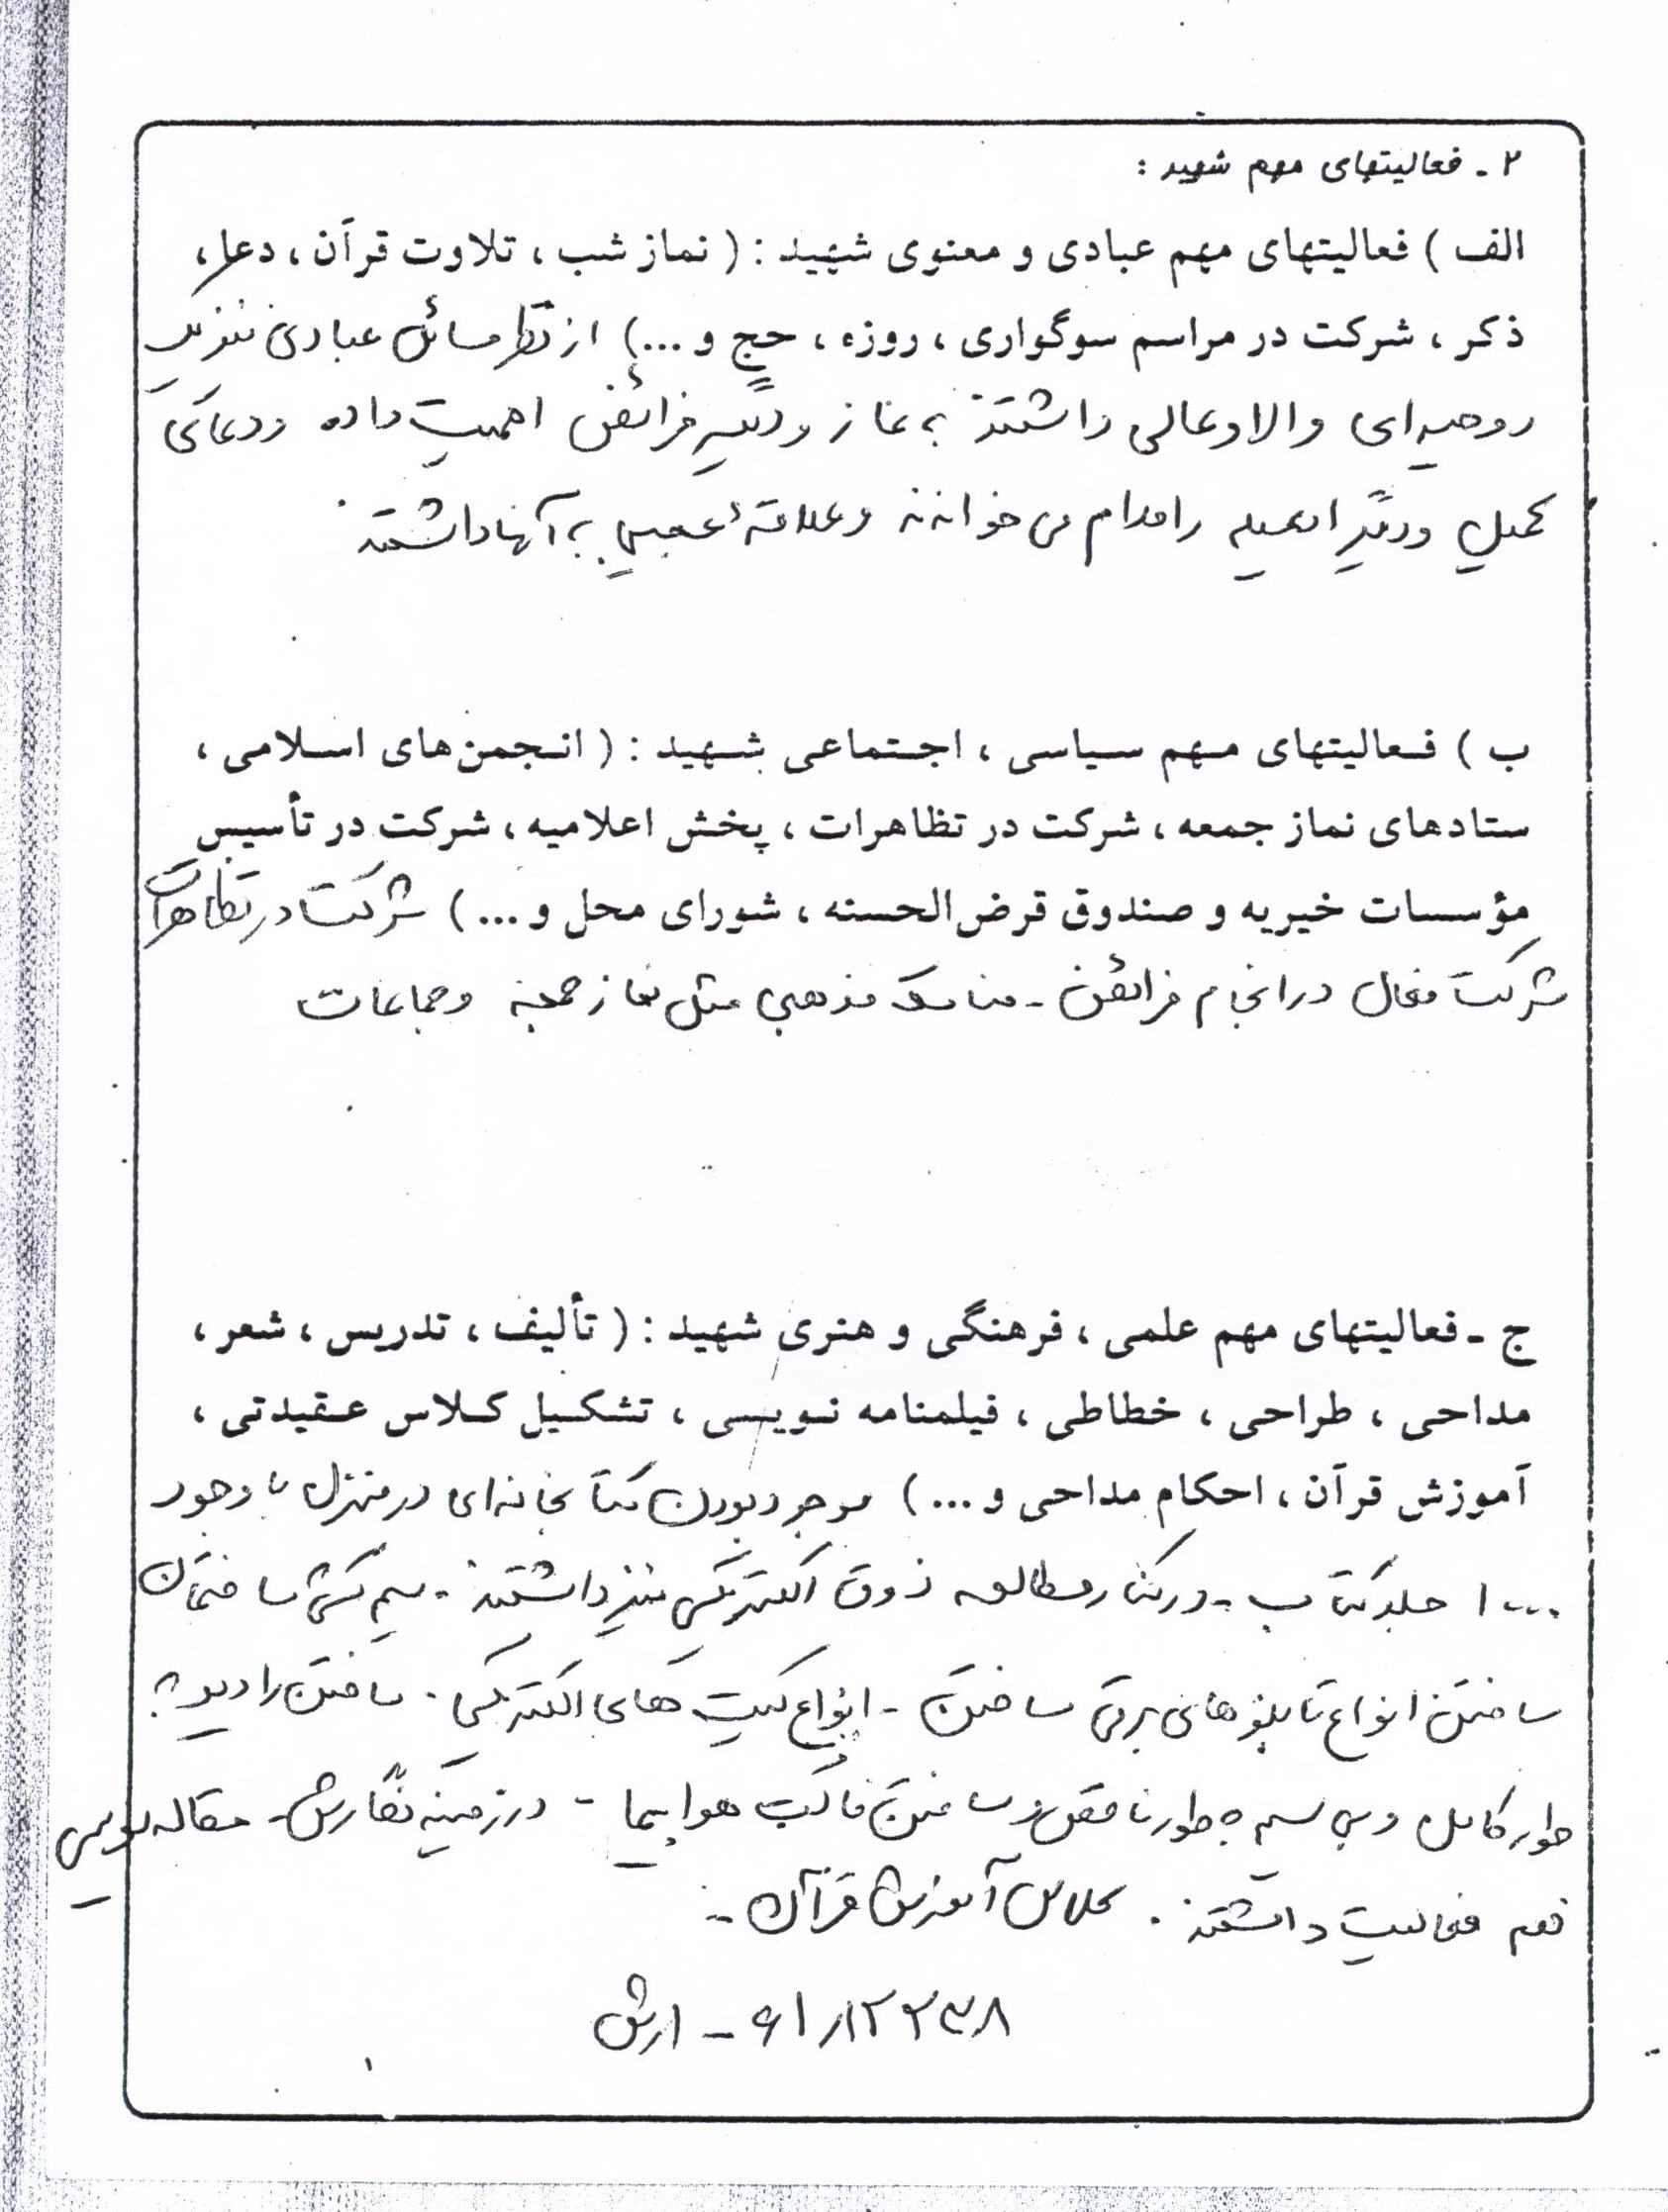 ۲ ـ فعالیتهای مهم شهید :
الف ) فعالیتهای مهم عبادی و معنوی شهید : ( نماز شب ، تلاوت قرآن ، دعا ،
ذکر ، شرکت در مراسم سوگواری ، روزه ، حج و ...) از نظر مسائل عبادی نیز یک
روحیه‌ای والا و عالی داشتند به نماز و دیگر فرائض اهمیت داده و دعای
کمیل و دیگر ادعیه را مدام می خواندند و علاقهٔ عجیبی به آنها داشتند.
ب ) فعالیتهای مهم سیاسی ، اجتماعی شهید : ( انجمن‌های اسلامی ،
ستادهای نماز جمعه ، شرکت در تظاهرات ، پخش اعلامیه ، شرکت در تأسیس
مؤسسات خیریه و صندوق قرض‌الحسنه ، شورای محل و ...) شرکت در تظاهرات
شرکت فعال در انجام فرائض - مناسک مذهبی مثل نماز جمعه و جماعات
ج ـ فعالیتهای مهم علمی ، فرهنگی و هنری شهید : ( تألیف ، تدریس ، شعر ،
مداحی ، طراحی ، خطاطی ، فیلمنامه نویسی ، تشکیل کلاس عقیدتی ،
آموزش قرآن ، احکام مداحی و ...) موجود بودن کتابخانه‌ای در منزل با وجود
۱۰۰۰ جلد کتاب - در کنار مطالعه ذوق الکتریکی نیز داشتند - سیم کشی ساختمان
ساختن انواع تابلوهای برقی ساختن - انواع کیت های الکتریکی - ساختن رادیو به
طور کامل و بی سیم به طور ناقص و ساختن ماکت هواپیما - در زمینه نگارش - مقاله نویسی
هم فعالیت داشتند . کلاس آموزش قرآن -
۶۱/۱۲۲۳۸ - ارتش